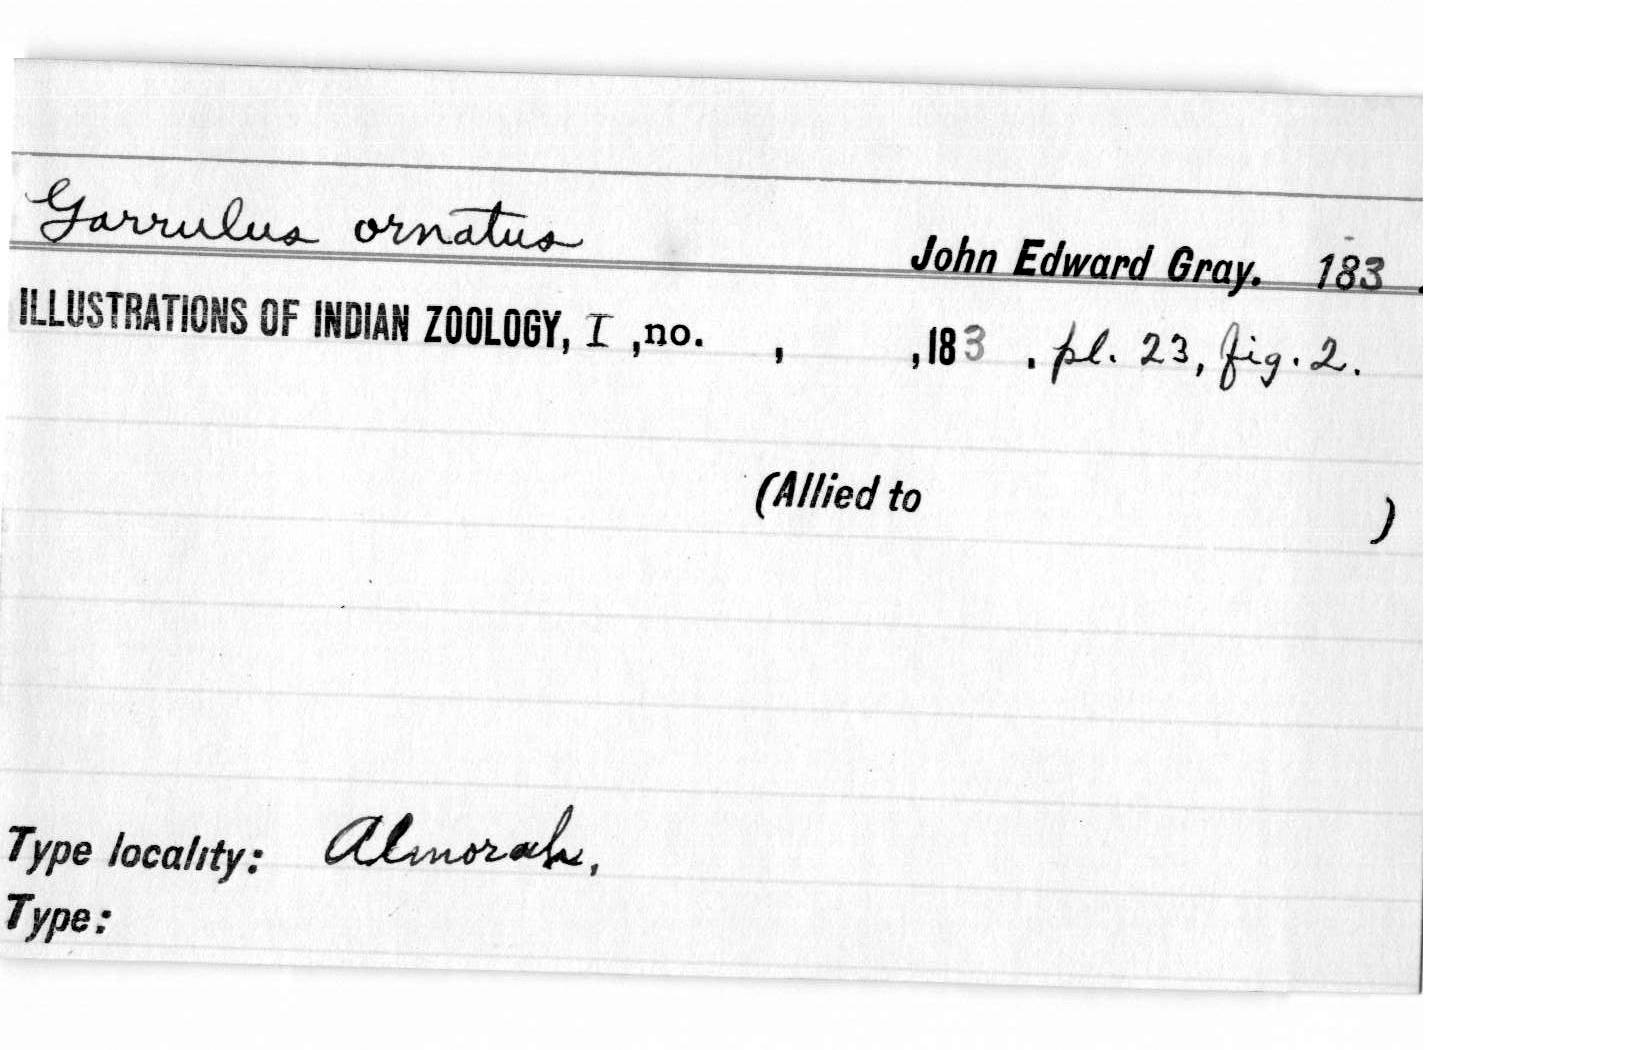 Garrulus ornatus John Edward Gray. 183 .
ILLUSTRATIONS OF INDIAN ZOOLOGY, I ,no. , ,183 . pl. 23, fig. 2.
(Allied to )
Type locality: Almorah,
Type: